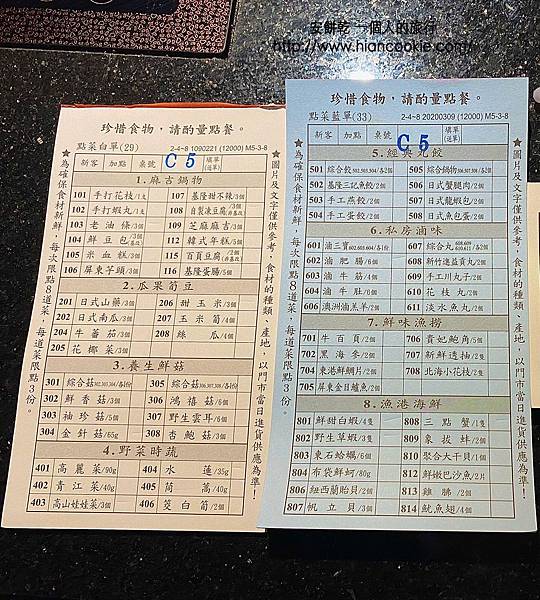 安餅乾 一個人的旅行
http://www.hiancookie.com/
珍惜食物，請酌量點餐。
點菜白單(29) 2-4~8 1090221 (12000) M5-3-8
新客 加點 桌號 C5 填單(送單)
★為確保食材新鮮，每次限點8道菜，每道菜限點3份。
1.麻吉鍋物
101 手打花枝/1支 107 基隆甜不辣/3個
102 手打蝦丸/1支 108 自製凍豆腐/3個
103 老油條/3個 109 芝麻麻吉/3個
104 鮮豆包/3個 112 韓式年糕/5個
105 米血糕/3個 115 百頁豆腐/2個
106 屏東芋頭/3個 116 基隆蛋腸/5個
2.瓜果筍豆
201 日式山藥/3個 206 甜玉米/3個
202 日式南瓜/3個 207 玉米筍/4個
204 牛蕃茄/3個 208 絲瓜/4個
205 花椰菜/3個
3.養生鮮菇
301 綜合菇302,303,304/各1份 305 綜合菇306,307,308/各1份
302 鮮香菇/3個 306 鴻禧菇/6個
303 袖珍菇/5個 307 野生雲耳/6個
304 金針菇/65g 308 杏鮑菇/3個
4.野菜時蔬
401 高麗菜/90g 404 水蓮/35g
402 青江菜/40g 405 茼蒿/40g
403 高山娃娃菜/3個 406 茭白筍/2個
★圖片及文字僅供參考，食材的種類、產地，以門市當日進貨供應為準！
珍惜食物，請酌量點餐。
點菜藍單(33) 2-4~8 20200309 (12000) M5-3-8
新客 加點 桌號 C5 填單(送單)
★為確保食材新鮮，每次限點8道菜，每道菜限點3份。
5.經典丸餃
501 綜合餃502,503,504/各2個 505 綜合鍋物506,507,508/各2個
502 基隆三記魚餃/2個 506 日式蟹腿肉/2個
503 手工燕餃/2個 507 日式龍蝦包/2個
504 手工蛋餃/2個 508 日式魚包蛋/2個
6.私房滷味
601 滷三寶602,603,604/各1個 607 綜合丸608,609,610,611/各2個
602 滷肥腸/6個 608 新竹進益貢丸/2個
603 滷牛筋/4個 609 手工川丸子/2個
604 滷牛肚/6個 610 花枝丸/2個
606 澳洲滷羔羊/2個 611 淡水魚丸/2個
7.鮮味漁撈
701 牛百頁/2個 706 貴妃鮑角/5個
702 黑海參/2個 707 新鮮透抽/2隻
704 東港鮮鯛片/2個 708 北海小花枝/2隻
705 屏東金目鱸魚/2個
8.漁港海鮮
801 鮮甜白蝦/4隻 808 三點蟹/1隻
802 野生草蝦/3隻 809 象拔蚌/2個
803 東石蛤蠣/6個 810 聚合大干貝/1個
804 布袋鮮蚵/80g 812 鮮嫩巴沙魚/2片
806 紐西蘭貽貝/2個 813 雞腿/2個
807 帆立貝/3個 814 魷魚翅/4個
★圖片及文字僅供參考，食材的種類、產地，以門市當日進貨供應為準！